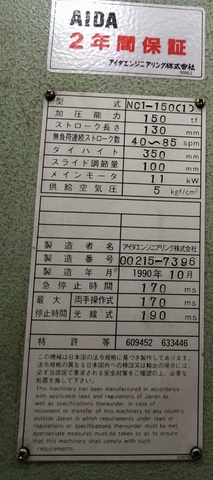 AIDA
2年間保証
アイダエンジニアリング株式会社
型式 NC1-150(1)
加圧能力 150 tf
ストローク長さ 130 mm
無負荷連続ストローク数 40～85 spm
ダイハイト 350 mm
スライド調節量 100 mm
メインモータ 11 kW
供給空気圧 5 kgf/cm²
製造者名 アイダエンジニアリング株式会社
製造番号 00215-7396
製造年月 1990年10月
急停止時間 170 ms
最大停止時間 両手操作式 170 ms
光線式 190 ms
特許等 609452 633446
この機械は日本国の法令規格に基づき製作してあります。
法令規格の異なる日本国外への移設又は輸出の場合には、
必ず当該国で要求される安全対策をご確認の上、必要な
処置を施して下さい。
This machinery has been manufactured in accordance
with applicable laws and regulations of Japan as
well as specifications thereunder. In case of
movement or transfer of this machinery to any country
outside Japan in which requirements under laws or
regulations or specifications thereunder must be met,
appropriate measures must be taken so as to ensure
that this machinery shall comply with such
requirements.